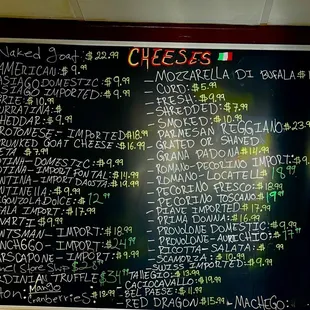 Naked goat: $22.99
CHEESES
AMERICAN: $9.99
ASIAGO DOMESTIC: $9.99
ASIAGO IMPORTED: $9.99
BRIE: $10.99
BURRATINA: $
CHEDDAR: $9.99
CROTONESE:- IMPORTED $18.99
DRUNKED GOAT CHEESE $16.99
FETA $7.99
FONTINA-DOMESTIC: $9.99
FONTINA-IMPORT FONTAL: $14.99
FONTINA-IMPORT DAOSTA: $19.99
FONTINELLA: $9.99
GORGONZOLA DOLCE: $12.99
IMPORT: $17.99
$9.99
HUNTSMAN-IMPORT: $18.99
MANCHEGO-IMPORT: $24.99
MARSCAPONE-IMPORT: $9.99
SARDINIAN TRUFFLE
Mango
Cranberries $18.99
- MOZZARELLA DI BUFALA $
- CURD: $5.99
- FRESH: $9.99
- SHREDDED: $7.99
- SMOKED: $10.99
- PARMESAN REGGIANO $23.99
- GRATED OR SHAVED
- GRANA PADONA $14.99
- ROMANO-PECORINO IMPORT: $9.99
- ROMANO-LOCATELLI $18.99
- PECORINO FRESCO: $18.99
- PECORINO TOSCANO $19.99
- PIAVE IMPORTED $17.99
- PRIMA DONNA: $16.99
- PROVOLONE DOMESTIC: $9.99
- PROVOLONE-AURICCHIO: $17.99
- RICOTTA-SALATA: $9.99
- SCAMORZA: $10.99
- SWISS IMPORTED: $9.99
- TALEGGIO: $13.99
- CACIOCAVALLO: $19.99
- BEL PAESE: $11.99
- RED DRAGON $15.99 - MACHEGO: